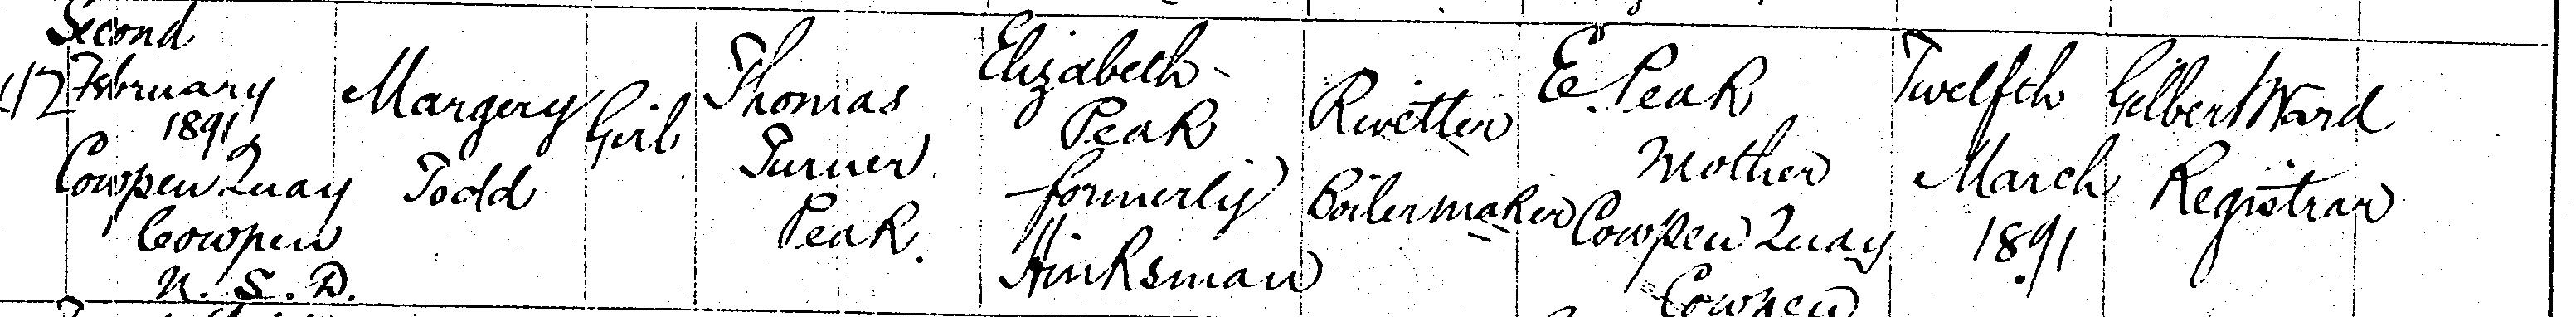 Second
February
1891
Cowpen Quay
Cowpen
U.S.D.
Margery
Todd
Girl
Thomas
Turner
Peak.
Elizabeth
Peak
formerly
Hinksman
Rivetter
Boilermaker
E. Peak
Mother
Cowpen Quay
Cowpen
Twelfth
March
1891
Gilbert Ward
Registrar